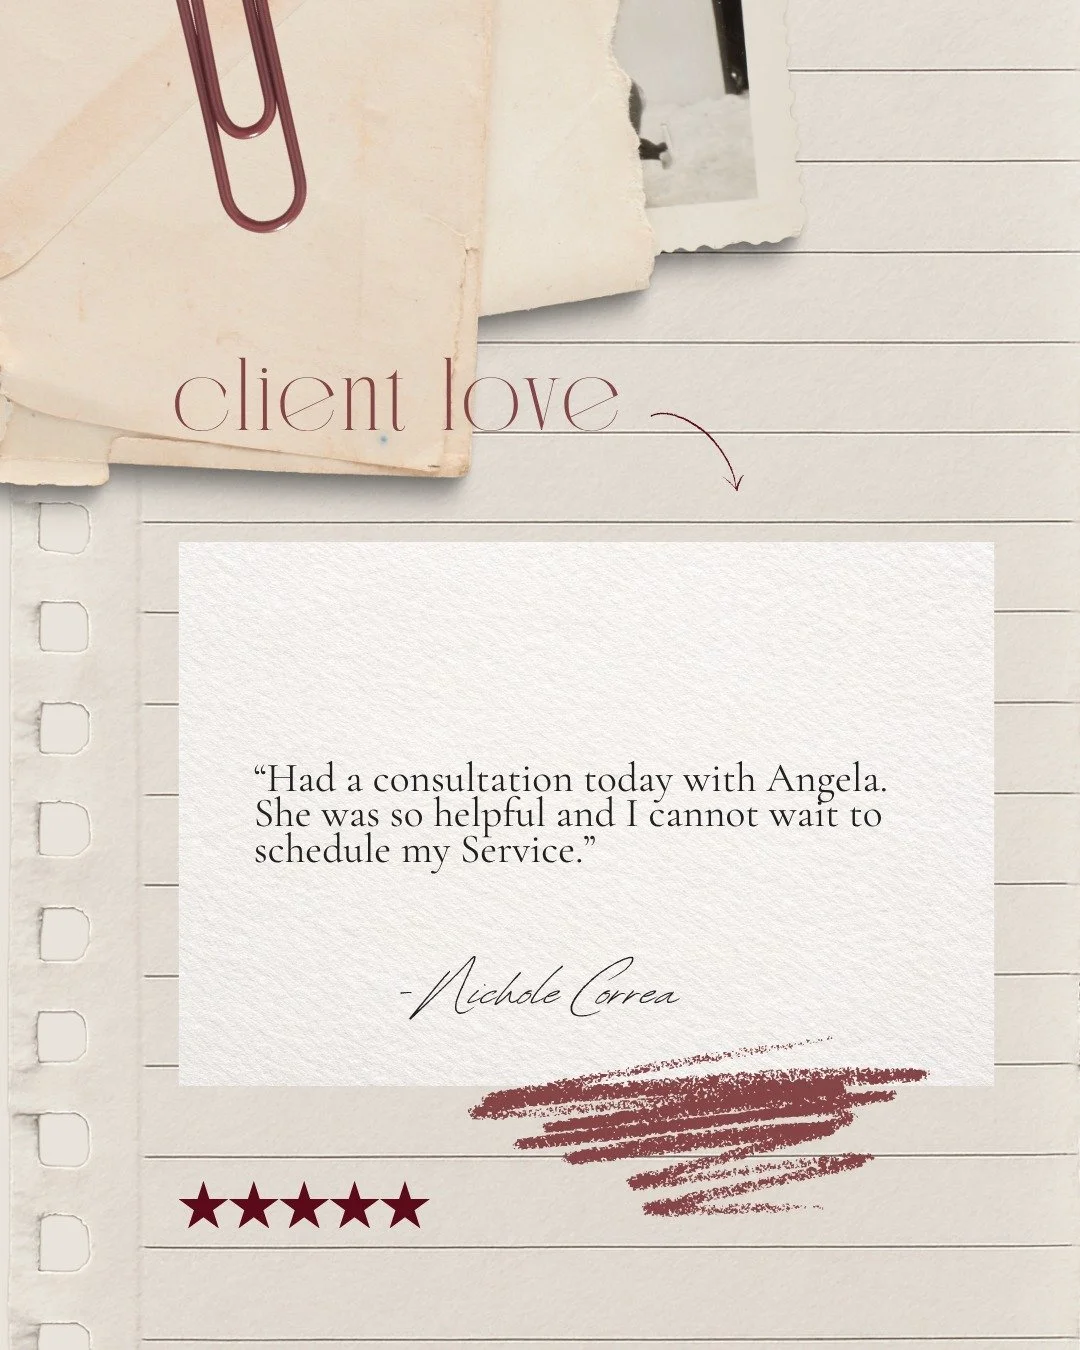 client love
“Had a consultation today with Angela.
She was so helpful and I cannot wait to
schedule my Service.”
-Nichole Correa